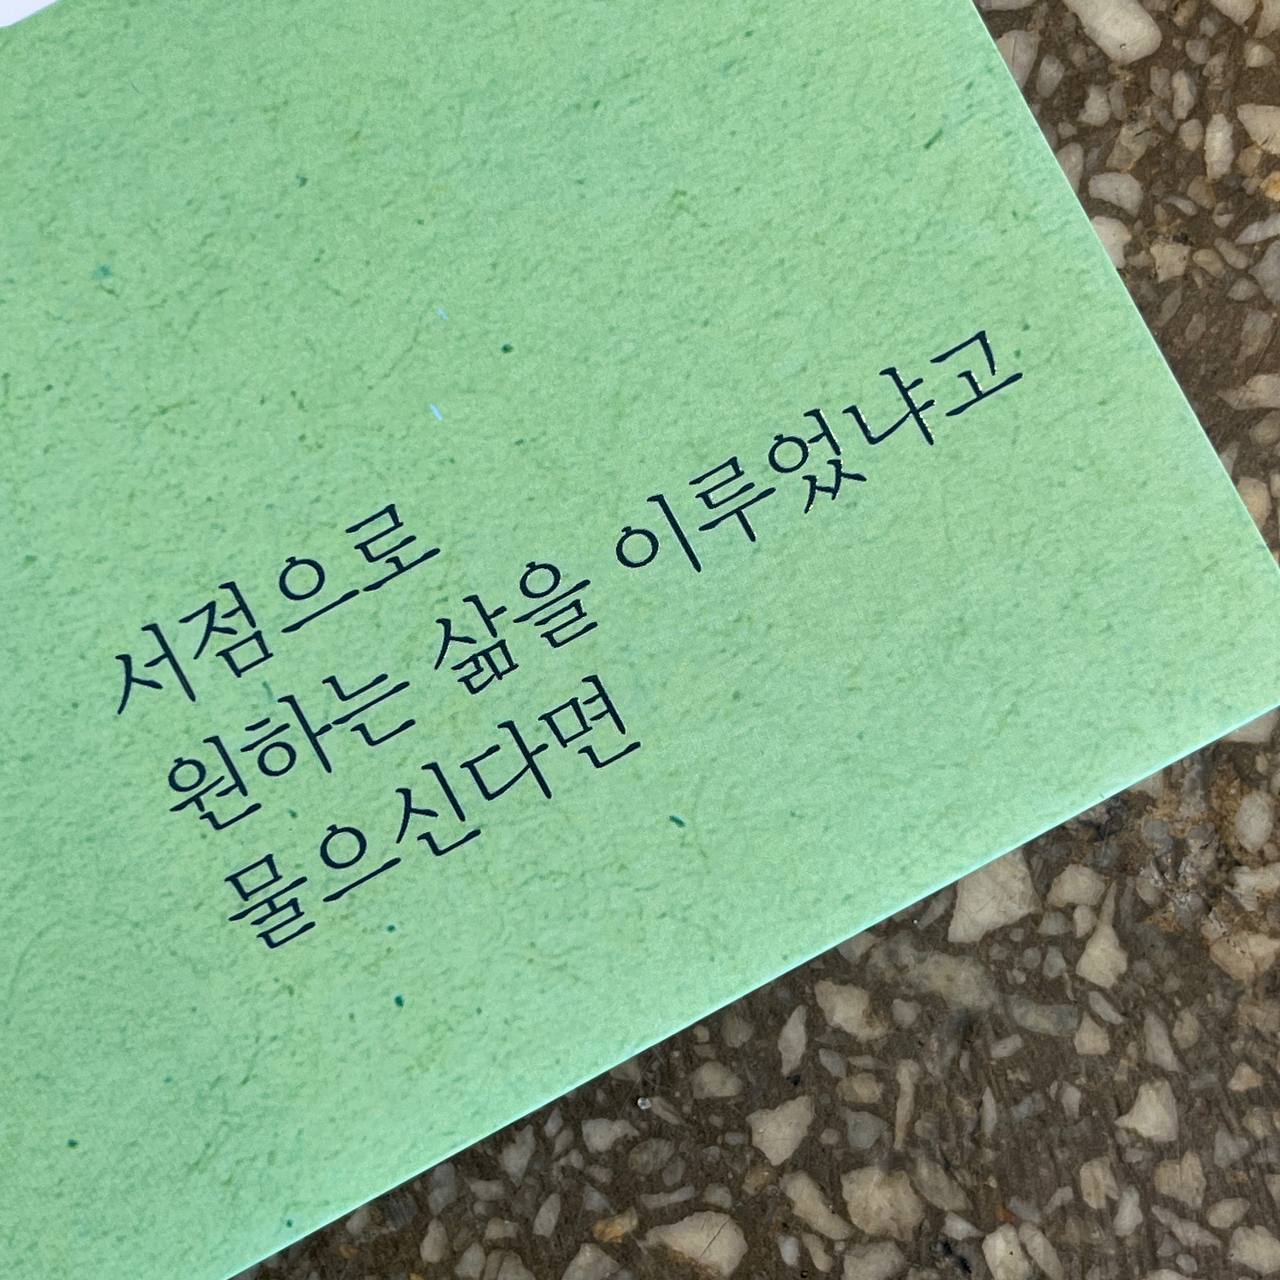 서점으로
원하는 삶을 이루었냐고
물으신다면